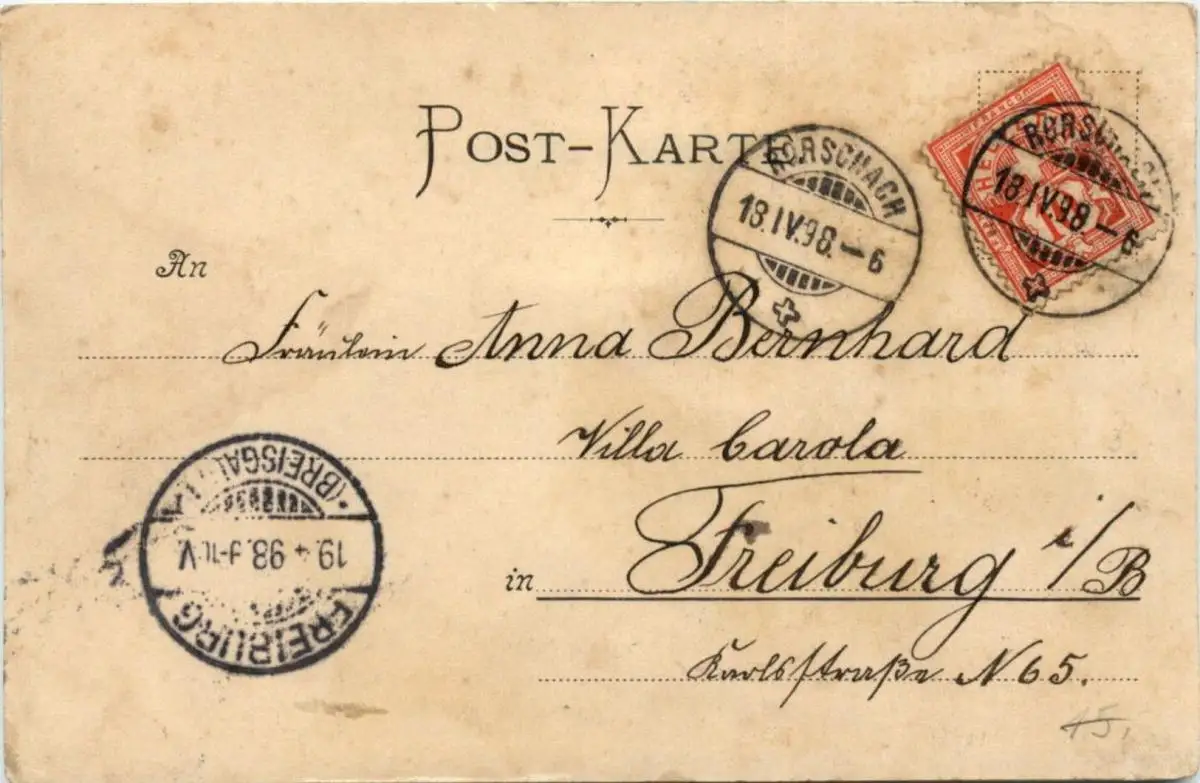 POST-KARTE
RORSCHACH
18.IV.98.–6
RORSCHACH
18.IV.98.–6
FRANCO
HEL
An
Fräulein Anna Bernhard
Villa Carola
in Freiburg i/B
Karlsstraße N 65.
(BREISGAU)
19.4.98.9-10.V.
FREIBURG
45.